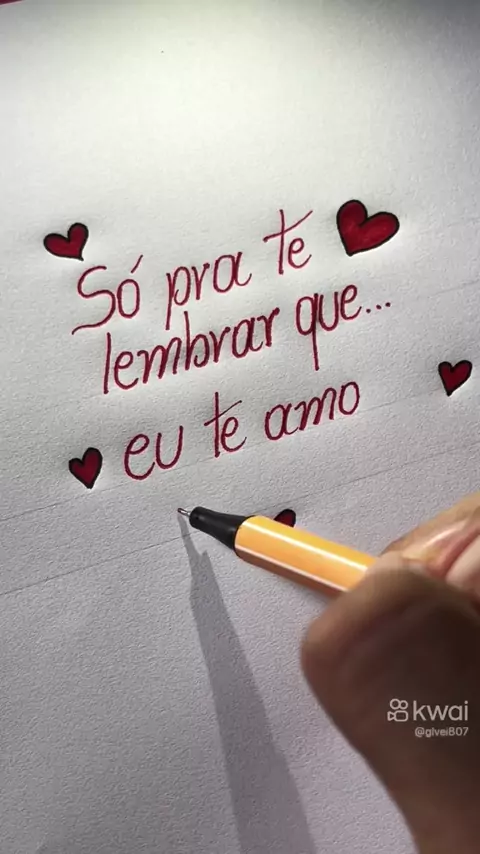 Só pra te
lembrar que...
eu te amo
kwai
@glvei807